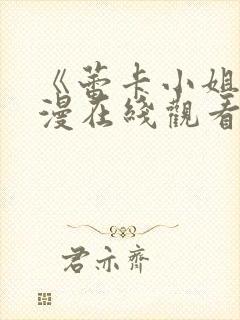 《蕾卡小姐
漫在线觀看
君亦齊